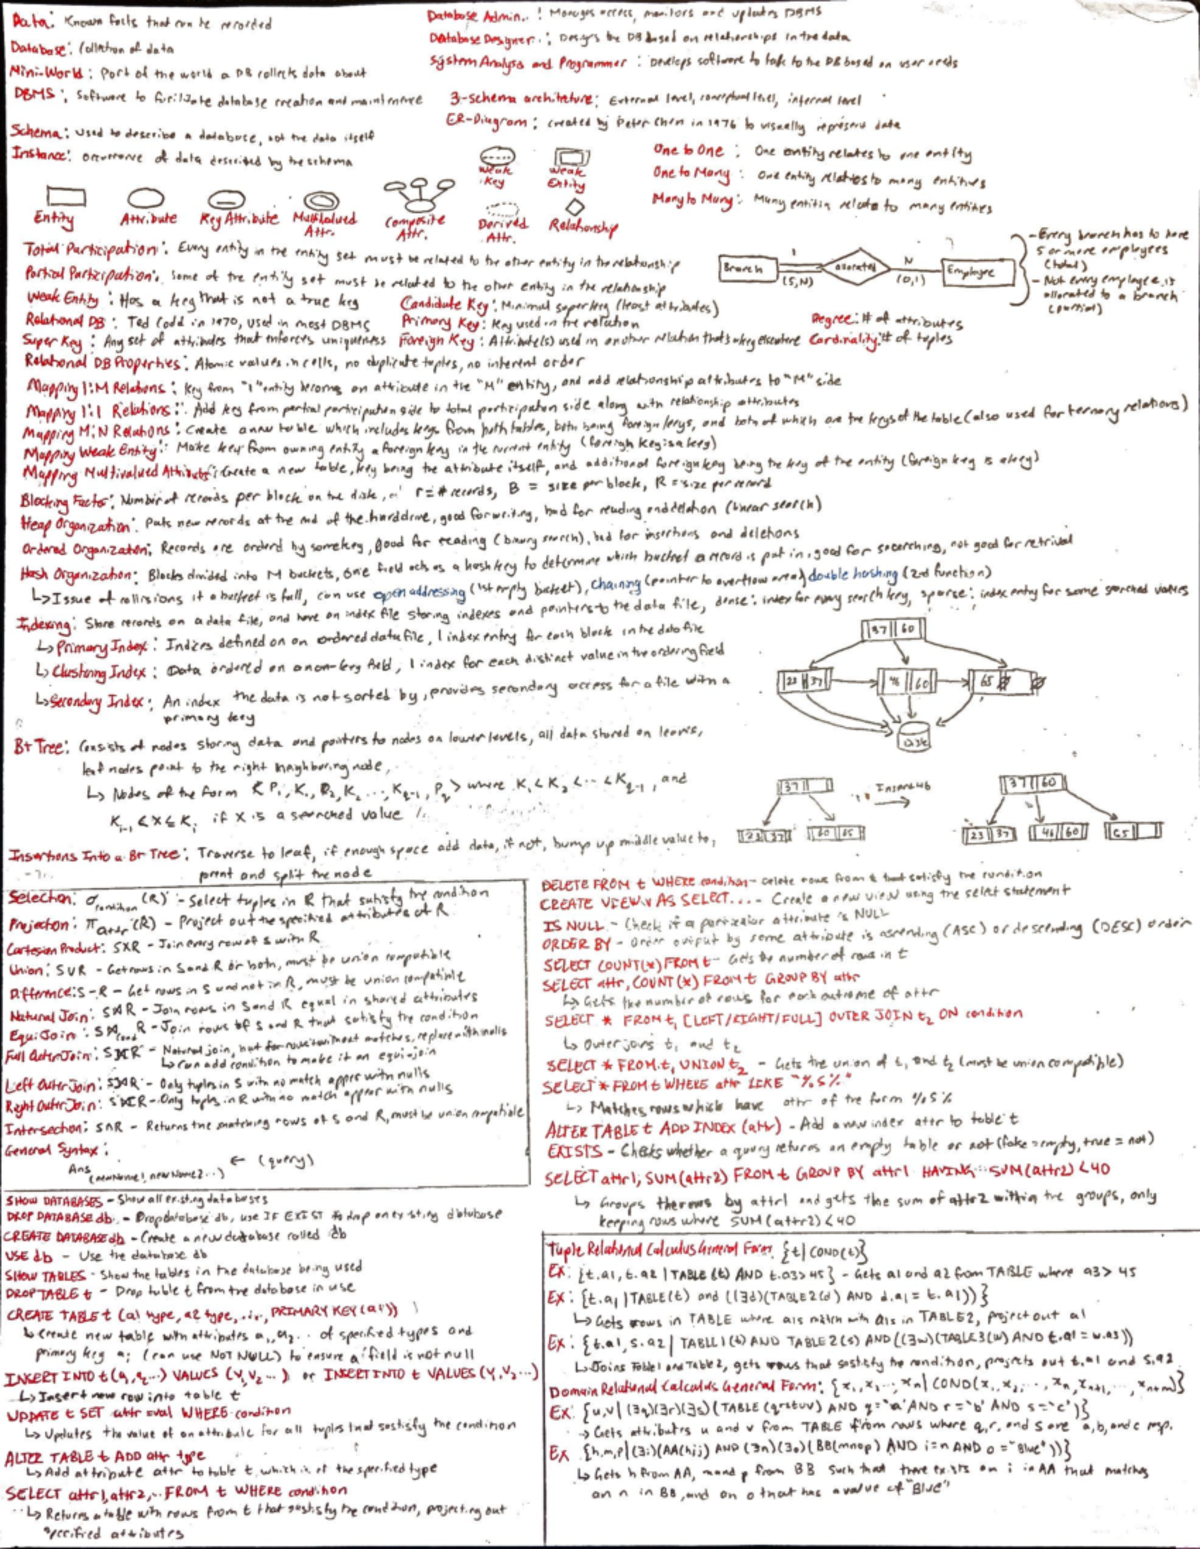 Data: Known facts that can be recorded
Database: Collection of data
Mini-World: Part of the world a DB collects data about
DBMS: Software to facilitate database creation and maintenence
Schema: Used to describe a database, not the data itself
Instance: occurrence of data described by the schema
Database Admin.: Manages access, monitors and updates DBMS
Database Designer: Designs the DB based on relationships in the data
System Analysis and Programmer: Develops software to talk to the DB based on user needs
3-schema architecture: External level, conceptual level, internal level
ER-Diagram: created by Peter Chen in 1976 to visually represent data
One to One: One entity relates to one entity
One to Many: One entity relates to many entities
Many to Many: Many entities relate to many entities
Weak Key
Weak Entity
Entity
Attribute
Key Attribute
Multivalued Attr.
Composite Attr.
Derived Attr.
Relationship
Total Participation: Every entity in the entity set must be related to the other entity in the relationship
Partial Participation: Some of the entity set must be related to the other entity in the relationship
Branch
1
(5,N)
allocated
N
(0,1)
Employee
- Every branch has to have 5 or more employees (total)
- Not every employee is allocated to a branch (partial)
Weak Entity: Has a key that is not a true key
Candidate Key: Minimal super key (least attributes)
Relational DB: Ted Codd in 1970, used in most DBMS
Primary Key: Key used in the relation
Degree: # of attributes
Super Key: Any set of attributes that enforces uniqueness
Foreign Key: Attribute(s) used in another relation that's a key elsewhere
Cardinality: # of tuples
Relational DB Properties: Atomic values in cells, no duplicate tuples, no inherent order
Mapping 1:M Relations: Key from "1" entity becomes an attribute in the "M" entity, and add relationship attributes to "M" side
Mapping 1:1 Relations: Add key from partial participation side to total participation side along with relationship attributes
Mapping M:N Relations: Create a new table which includes keys from both tables, both being foreign keys, and both of which are the keys of the table (also used for ternary relations)
Mapping Weak Entity: Make key from owning entity a foreign key in the current entity (foreign key is a key)
Mapping Multivalued Attribute: Create a new table, key being the attribute itself, and additional foreign key being the key of the entity (foreign key is a key)
Blocking Factor: Number of records per block on the disk, r = # records, B = size per block, R = size per record
Heap Organization: Puts new records at the end of the harddrive, good for writing, bad for reading and deletion (linear search)
Ordered Organization: Records are ordered by some key, good for reading (binary search), bad for insertions and deletions
Hash Organization: Blocks divided into M buckets, one field acts as a hash key to determine which bucket a record is put in, good for searching, not good for retrival
↳ Issue of collisions if a bucket is full, can use open addressing (1st empty bucket), chaining (pointer to overflow area) double hashing (2nd function)
Indexing: Store records on a data file, and have an index file storing indexes and pointers to the data file, dense: index for every search key, sparse: index entry for some searched values
↳ Primary Index: Indices defined on an ordered data file, 1 index entry for each block in the data file
↳ Clustering Index: Data ordered on a non-key field, 1 index for each distinct value in the ordering field
↳ Secondary Index: An index the data is not sorted by, provides secondary access for a file with a primary key
37 60
23 37
46 60
65
Disk
B+ Tree: Consists of nodes storing data and pointers to nodes on lower levels, all data stored on leaves,
leaf nodes point to the right neighboring node,
↳ Nodes of the form <P1, K1, P2, K2 ..., Kq-1, Pq> where K1 < K2 < ... < Kq-1, and
Ki-1 < X ≤ Ki if X is a searched value
37
23 37
60 65
Insert 46
37 60
23 37
46 60
65
Insertions Into a B+ Tree: Traverse to leaf, if enough space add data, if not, bump up middle value to
parent and split the node
Selection: σcondition (R) - Select tuples in R that satisfy the condition
Projection: πattr (R) - Project out the specified attributes of R
Cartesian Product: SXR - Join every row of S with R
Union: SUR - Get rows in S and R or both, must be union compatible
Difference: S-R - Get rows in S and not in R, must be union compatible
Natural Join: S⋈R - Join rows in S and R equal in shared attributes
Equi Join: S⋈cond R - Join rows of S and R that satisfy the condition
Full Outer Join: S⟗R - Natural join, but for rows without matches, replace with nulls
↳ can add condition to make it an equi-join
Left Outer Join: S⟕R - Only tuples in S with no match appear with nulls
Right Outer Join: S⟖R - Only tuples in R with no match appear with nulls
Intersection: S∩R - Returns the matching rows of S and R, must be union compatible
General Syntax:
Ans(newName1, newName2...) ← (query)
SHOW DATABASES - Show all existing databases
DROP DATABASE db - Drop database db, use IF EXIST to drop an existing database
CREATE DATABASE db - Create a new database called db
USE db - Use the database db
SHOW TABLES - Show the tables in the database being used
DROP TABLE t - Drop table t from the database in use
CREATE TABLE t (a1 type, a2 type, ..., PRIMARY KEY(a1))
↳ Create new table with attributes a1, a2... of specified types and
primary key a1 (can use NOT NULL) to ensure a field is not null
INSERT INTO t(a1, a2...) VALUES (v1, v2...) or INSERT INTO t VALUES (v1, v2...)
↳ Insert new row into table t
UPDATE t SET attr = val WHERE condition
↳ Updates the value of an attribute for all tuples that sastisfy the condition
ALTER TABLE t ADD attr type
↳ Add attribute attr to table t, which is of the specified type
SELECT attr1, attr2,... FROM t WHERE condition
↳ Returns a table with rows from t that sastisfy the condition, projecting out
specified attributes
DELETE FROM t WHERE condition - Delete rows from t that satisfy the condition
CREATE VIEW v AS SELECT... - Create a new view using the select statement
IS NULL - Check if a particular attribute is NULL
ORDER BY - Order output by some attribute is ascending (ASC) or descending (DESC) order
SELECT COUNT(*) FROM t - Gets the number of rows in t
SELECT attr, COUNT(*) FROM t GROUP BY attr
↳ Gets the number of rows for each outcome of attr
SELECT * FROM t1 [LEFT/RIGHT/FULL] OUTER JOIN t2 ON condition
↳ Outer joins t1 and t2
SELECT * FROM t1 UNION t2 - Gets the union of t1 and t2 (must be union compatible)
SELECT * FROM t WHERE attr LIKE "%S%"
↳ Matches rows which have attr of the form %S%
ALTER TABLE t ADD INDEX (attr) - Add a new index attr to table t
EXISTS - Checks whether a query returns an empty table or not (false = empty, true = not)
SELECT attr1, SUM(attr2) FROM t GROUP BY attr1 HAVING SUM(attr2) < 40
↳ Groups the rows by attr1 and gets the sum of attr2 within the groups, only
keeping rows where SUM(attr2) < 40
Tuple Relational Calculus General Form: {t | COND(t)}
Ex: {t.a1, t.a2 | TABLE(t) AND t.a3 > 45} - Gets a1 and a2 from TABLE where a3 > 45
Ex: {t.a1 | TABLE(t) and ((∃d)(TABLE2(d) AND d.a1 = t.a1))}
↳ Gets rows in TABLE where a1s match with a1s in TABLE2, project out a1
Ex: {t.a1, s.a2 | TABLE1(t) AND TABLE2(s) AND ((∃w)(TABLE3(w) AND t.a1 = w.a3))
↳ Joins Table1 and Table2, gets rows that sastisfy the condition, projects out t.a1 and s.a2
Domain Relational Calculus General Form: {x1, x2, ... xn | COND(x1, x2, ..., xn, xn+1, ..., xn+m)}
Ex: {u,v | (∃q)(∃r)(∃s)(TABLE(qrstuv) AND q='a' AND r='b' AND s='c')}
→ Gets attributes u and v from TABLE from rows where q, r, and s are a, b, and c resp.
Ex {h,m,p | (∃i)(AA(hij) AND (∃n)(∃o)(BB(mnop) AND i=n AND o="Blue"))}
↳ Gets h from AA, m and p from BB such that there exists an i in AA that matches
an n in BB, and an o that has a value of "Blue"